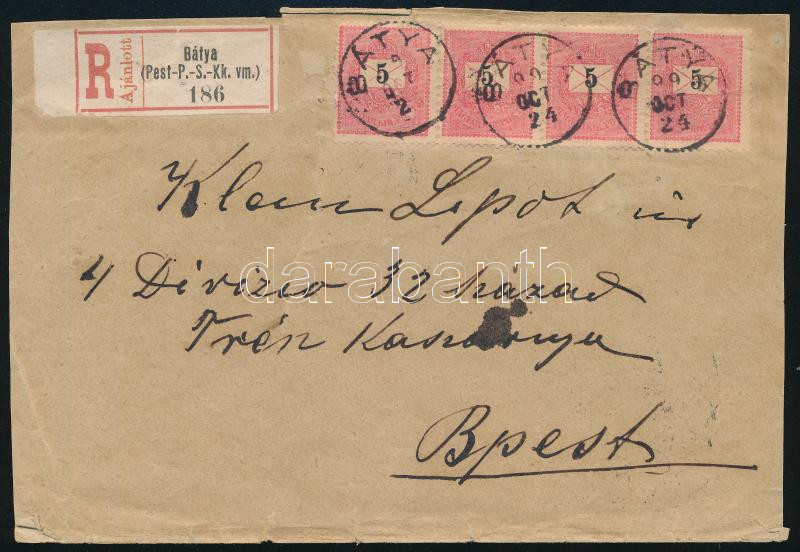 R Ajánlott
Bátya
(Pest-P.-S.-Kk. vm.)
186
5 5 5 5
BÁTYA
BÁTYA
99
OCT
24
BÁTYA
99
OCT
24
Klein Lipót úr
4 Divizio 32 század
Trén Kaszárnya
Bpest
darabanth